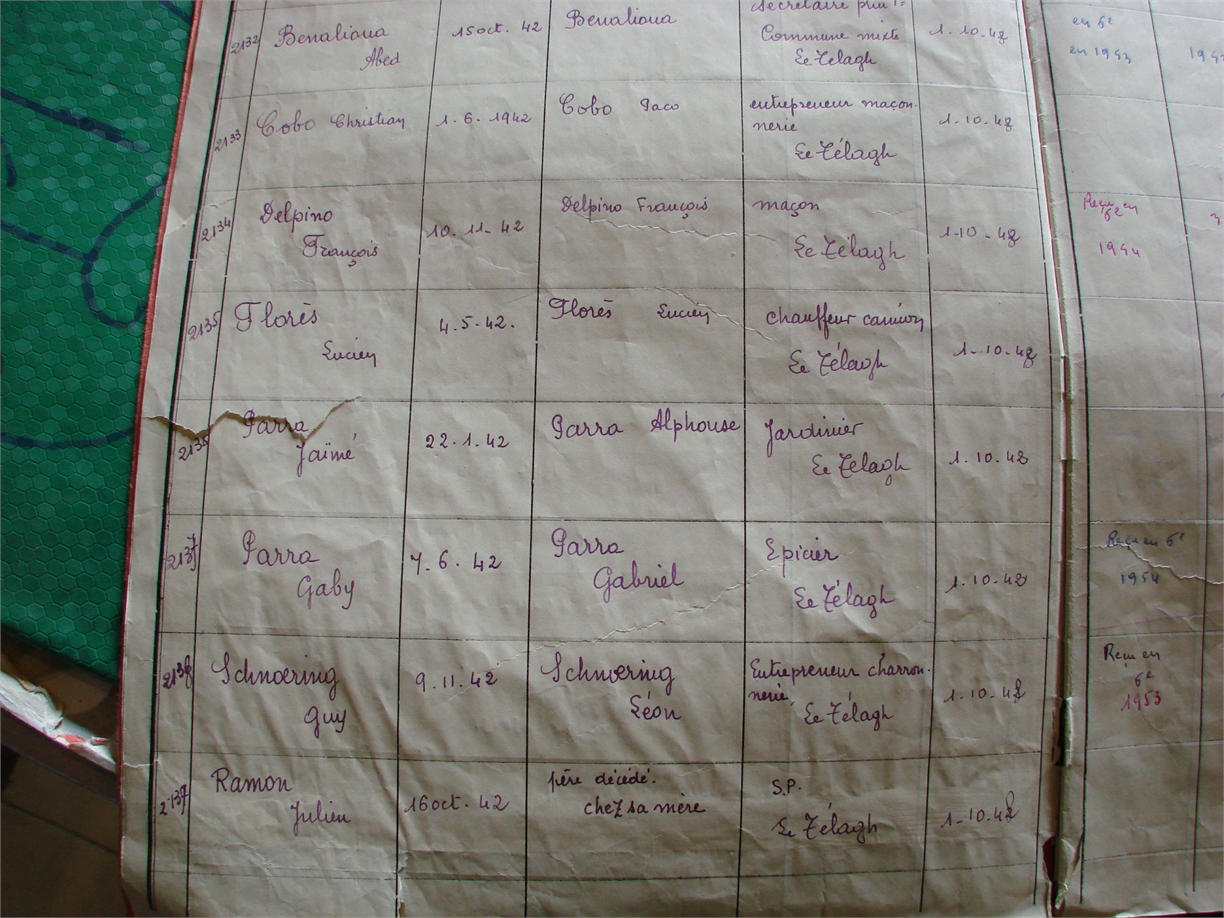 2132 Benalioua 15 oct. 42 Benalioua
Commune mixte 1.10.48 en 6e
Abed Le Télagh en 1953
2133 Cobo Christian 1.6.1942 Cobo Paco entrepreneur maçon-
nerie 1.10.48
Le Télagh
2134 Delpino Delpino François maçon Reçu en
François 10.11-42 Le Télagh 1-10-48 6e
1954
2135 Florès 4.5-42. Florès Lucien chauffeur camion
Lucien Le Télagh 1-10.48
Parra 22.1.42 Parra Alphonse Jardinier
Jaïmé Le Télagh 1.10.48
2137 Parra 7.6.42 Parra Epicier Reçu en 6e
Gaby Gabriel Le Télagh 1.10.48 1954
2138 Schnoering 9.11.42 Schnoering Entrepreneur charron- Reçu en
nerie, 1.10.48 6e
Guy Léon Le Télagh 1953
2137 Ramon 16 oct. 42 père décédé. S.P.
Julien chez sa mère Le Télagh 1-10.48